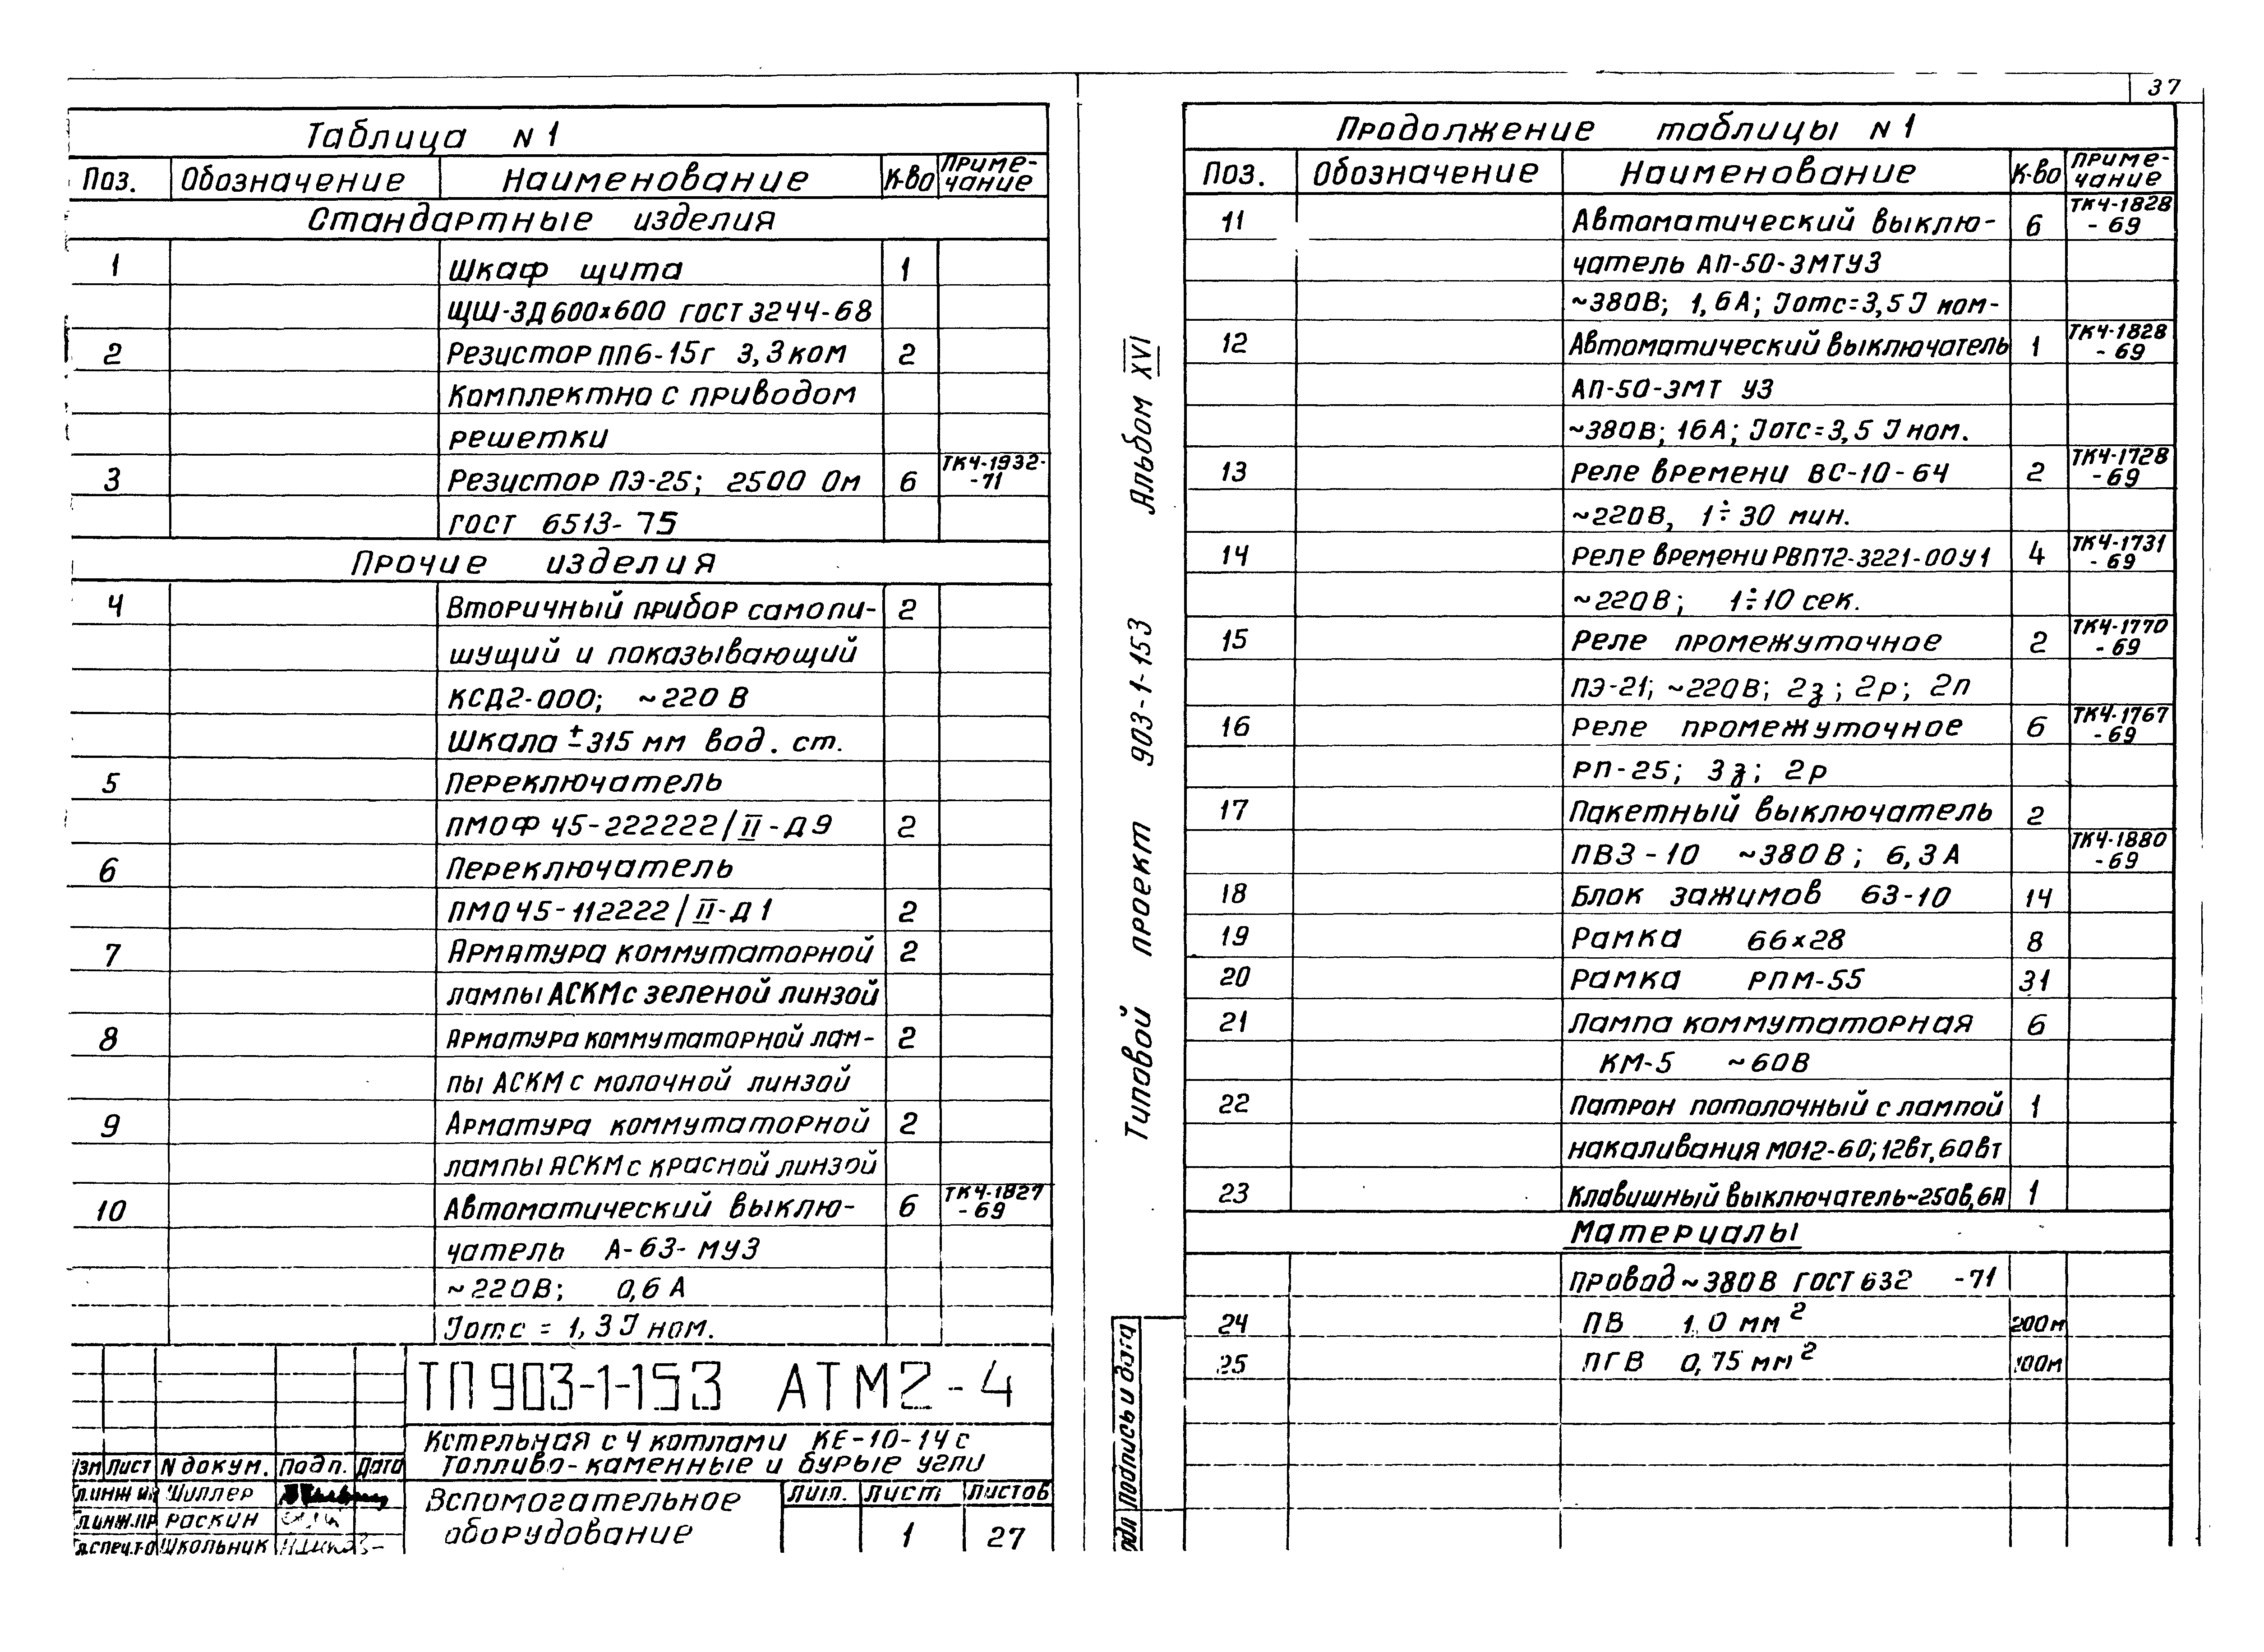 37
Таблица N 1
Поз. Обозначение Наименование К-во Приме-
чание
Стандартные изделия
1 Шкаф щита 1
ЩШ-ЗД 600х600 ГОСТ 3244-68
2 Резистор ПП6-15г 3,3 ком 2
Комплектно с приводом
решетки
3 Резистор ПЭ-25; 2500 Ом 6 ТК4-1932-
-71
ГОСТ 6513-75
Прочие изделия
4 Вторичный прибор самопи- 2
шущий и показывающий
КСД2-000; ~220 В
Шкала ±315 мм вод. ст.
5 Переключатель
ПМОФ 45-222222/II-Д9 2
6 Переключатель
ПМО 45-112222/II-Д1 2
7 Арматура коммутаторной 2
лампы АСКМ с зеленой линзой
8 Арматура коммутаторной лам- 2
пы АСКМ с молочной линзой
9 Арматура коммутаторной 2
лампы АСКМ с красной линзой
10 Автоматический выклю- 6 ТК4-1827
-69
чатель А-63-МУЗ
~220В; 0,6 А
Jотс = 1,3 J ном.
ТП 903-1-153 АТМ2-4
Котельная с 4 котлами КЕ-10-14с
Топливо-каменные и бурые угли
Изм Лист N докум. Подп. Дата
Шиллер
Раскин
Школьник
Вспомогательное
оборудование
Лит. Лист Листов
1 27
Типовой проект 903-1-153 Альбом XVI
Подпись и дата
Продолжение таблицы N 1
Поз. Обозначение Наименование К-во Приме-
чание
11 Автоматический выклю- 6 ТК4-1828
-69
чатель АП-50-3МТУЗ
~380В; 1,6А; Jотс=3,5 J ном-
12 Автоматический выключатель 1 ТК4-1828
-69
АП-50-3МТ УЗ
~380В; 16А; Jотс=3,5 J ном.
13 Реле времени ВС-10-64 2 ТК4-1728
-69
~220В, 1÷30 мин.
14 Реле времени РВП72-3221-00У1 4 ТК4-1731
-69
~220В; 1÷10 сек.
15 Реле промежуточное 2 ТК4-1770
-69
ПЭ-21; ~220В; 2з; 2р; 2п
16 Реле промежуточное 6 ТК4-1767
-69
РП-25; 3з; 2р
17 Пакетный выключатель 2
ПВЗ-10 ~380В; 6,3 А ТК4-1880
-69
18 Блок зажимов БЗ-10 14
19 Рамка 66х28 8
20 Рамка РПМ-55 31
21 Лампа коммутаторная 6
КМ-5 ~60В
22 Патрон потолочный с лампой 1
накаливания МО12-60; 12вт, 60вт
23 Клавишный выключатель ~250В, 6А 1
Материалы
Провод ~380В ГОСТ 632 -71
24 ПВ 1.0 мм² 200м
25 ПГВ 0,75 мм²